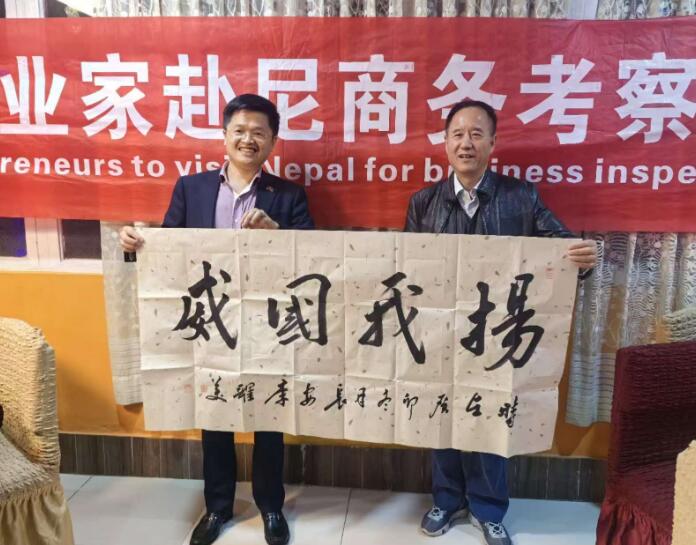 业家赴尼商务考察
reneurs to visit Nepal for business inspe
揚我國威
在癸卯冬月長安李